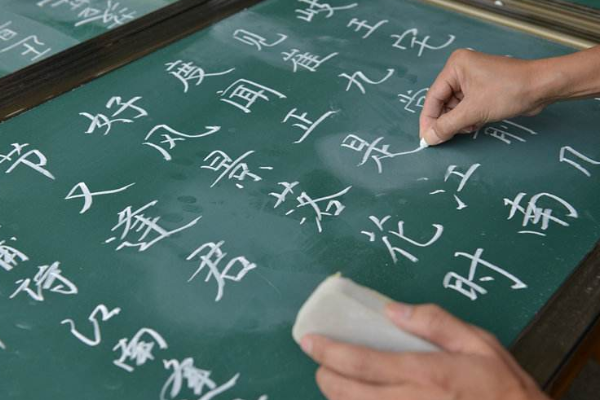 岐王宅
见崔九堂前几
度闻正是江南
好风景落花时
节又逢君
江南